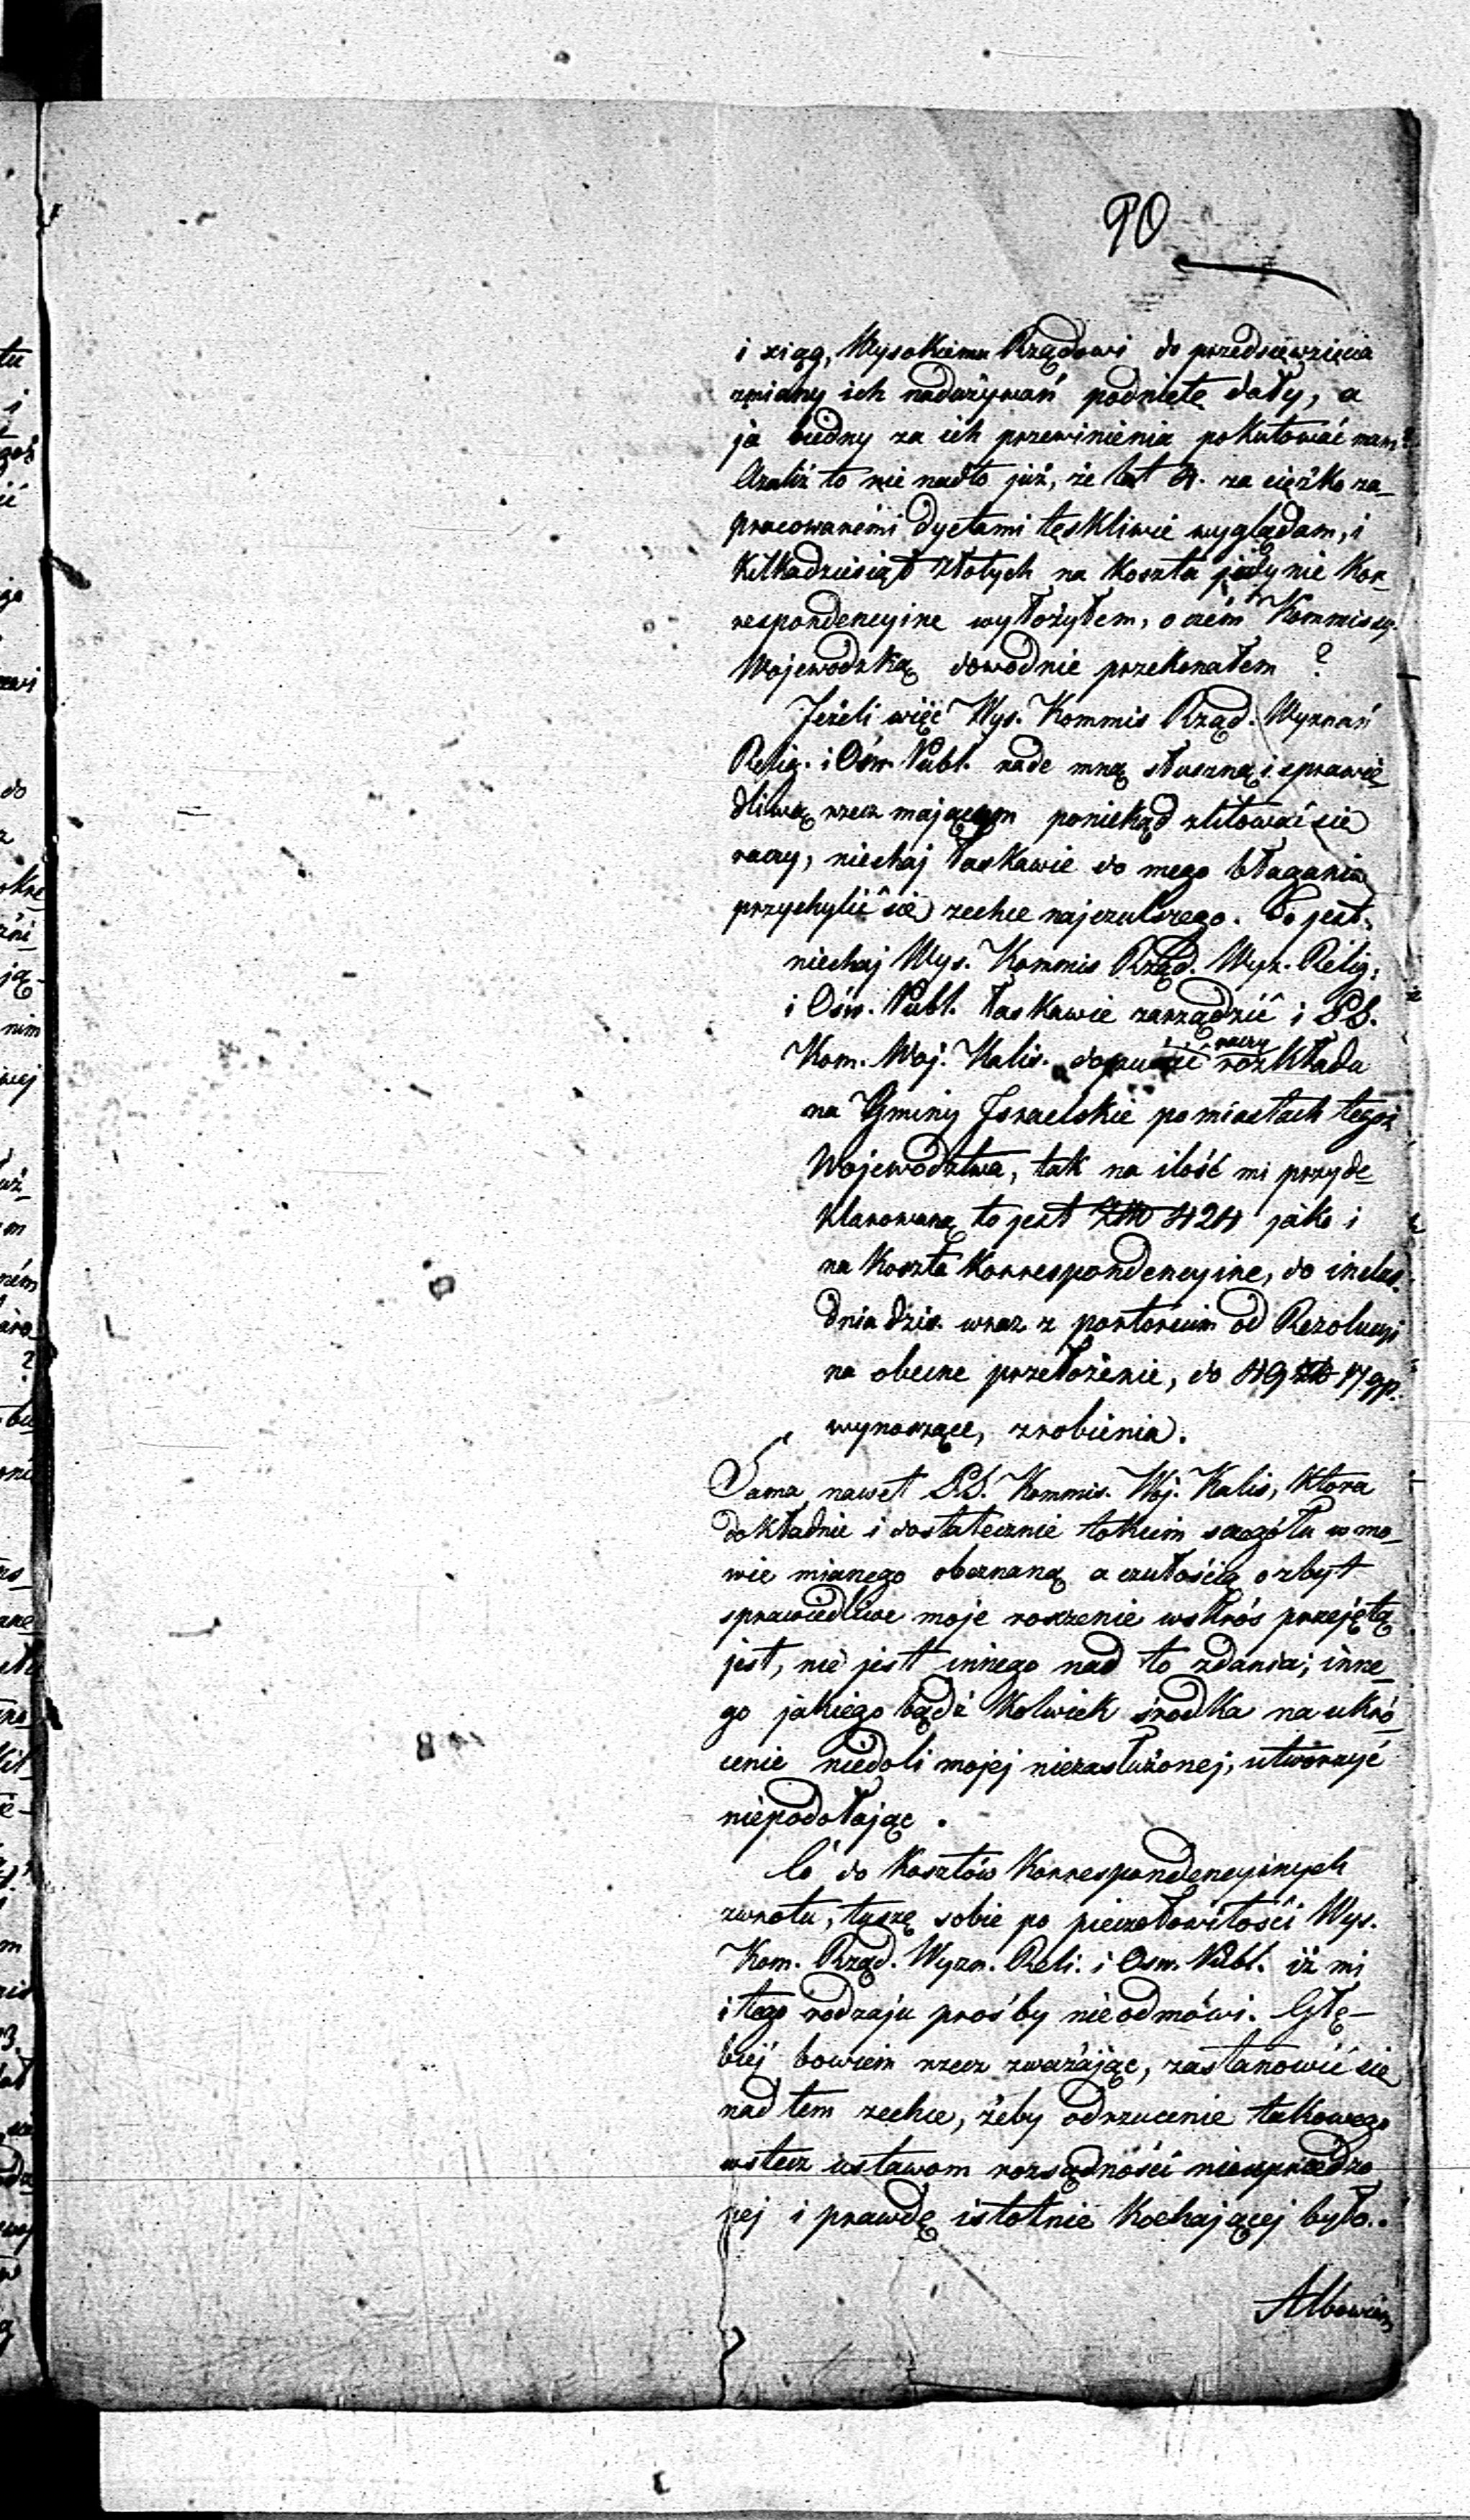 90
i xiąg, Wysokiemu Rządowi do przedsięwzięcia
zmiany ich nadużywań podnietę dały, a
ja biedny za ich przewinienia pokutować mam?
Azaliż to nie nadto już, że lat 4. za ciężko za_
pracowanémi dyetami tęskliwie wyglądam, i
kilkadziesiąt złotych na koszta jedynie kor_
respondencyine wyłożyłem, o czém Kommissy.
Wojewodzką dowodnie przekonałem ?
Jeżeli więc Wys. Kommis Rząd. Wyznań
Relig. i Ośw. Publ. nade mną słuszną i sprawie_
dliwą rzecz mającym poniekąd zlitować się
raczy, niechaj łaskawie do mego błagania
przychylić się zechce najczulszego. To jest,
niechaj Wys. Kommis Rząd. Wyz. Relig.
i Ośw. Publ. łaskawie zarządzić i PS.
raczy
Kom. Woj. Kalis. dopuścić rozkładu
na Gminy Israelskie po miastach tegoż
Województwa, tak na ilość mi przyde_
klarowaną to jest 424 jako i
na koszta korrespondencyine, do inclus.
dnia dzis. wraz z portorium od Rezolucyi
na obecne przełożenie, do 49 17 gp.
wynoszące, zrobienia.
Sama nawet PS. Kommis. Woj. Kalis, która
dokładnie i dostatecznie tokiem szczegółu w mo_
wie mianego obeznaną a czułością o zbyt
sprawiedliwe moje roszczenie wskróś przejętą
jest, nie jest innego nad to zdania; inne_
go jakiego bądź kolwiek środka na ukró_
cenie niedoli mojej niezasłużonej, utworzyć
niepodołając.
Co do kosztów korrespondencyinych
zwrotu, tuszę sobie po pieczołowitości Wys.
Kom. Rząd. Wyzn. Reli. i Osw. Publ. iż mi
i tego rodzaju prośby nieodmówi. Głę_
biéj bowiem rzecz zważając, zastanowić się
nad tem zechce, żeby odrzucenie takowego
wstecz ustawom rozsądności nieuprzedzo
nej i prawdę istotnie kochającej było..
Albowiem